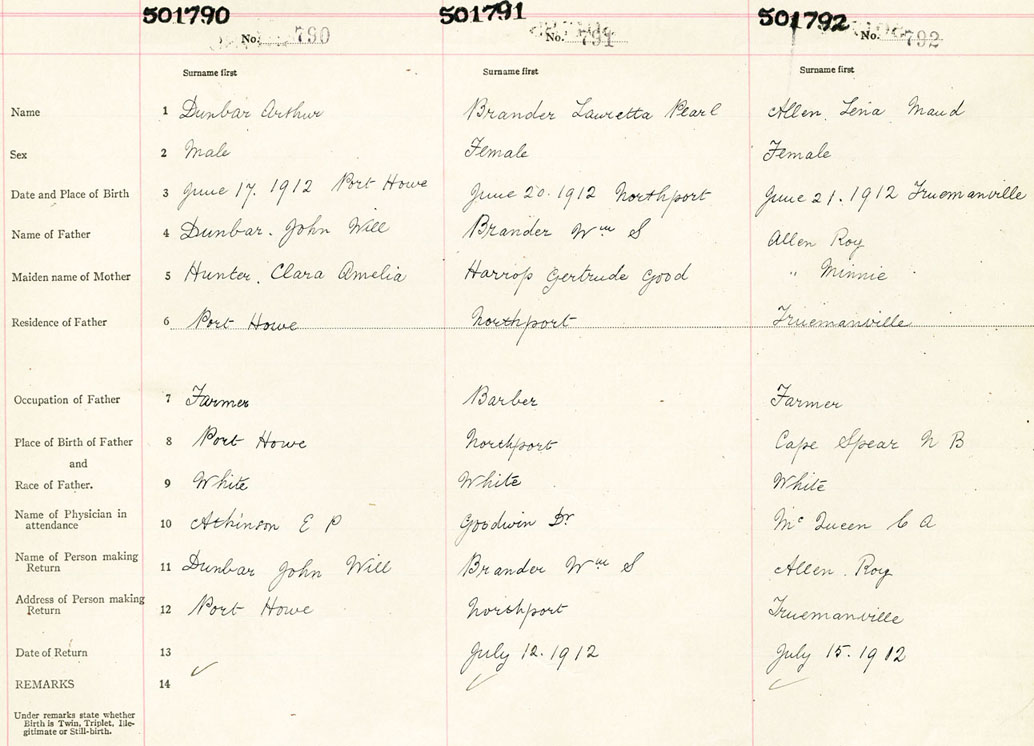 501790 501791 501792
No. 790 No. 791 No. 792
Surname first Surname first Surname first
Name 1 Dunbar Arthur Brander Lauretta Pearl Allen. Lena Maud
Sex 2 Male Female Female
Date and Place of Birth 3 June 17. 1912 Port Howe June 20. 1912 Northport June 21. 1912 Truemanville
Name of Father 4 Dunbar. John Will Brander Wm S Allen Roy
Maiden name of Mother 5 Hunter. Clara Amelia Harrop Gertrude Good " Minnie
Residence of Father 6 Port Howe Northport Truemanville
Occupation of Father 7 Farmer Barber Farmer
Place of Birth of Father 8 Port Howe Northport Cape Spear N B
and
Race of Father. 9 White White White
Name of Physician in
attendance 10 Atkinson E P Goodwin Dr Mc Queen C A
Name of Person making
Return 11 Dunbar John Will Brander Wm S Allen. Roy
Address of Person making
Return 12 Port Howe Northport Truemanville
Date of Return 13 July 12. 1912 July 15. 1912
REMARKS 14
Under remarks state whether
Birth is Twin, Triplet, Ille-
gitimate or Still-birth.